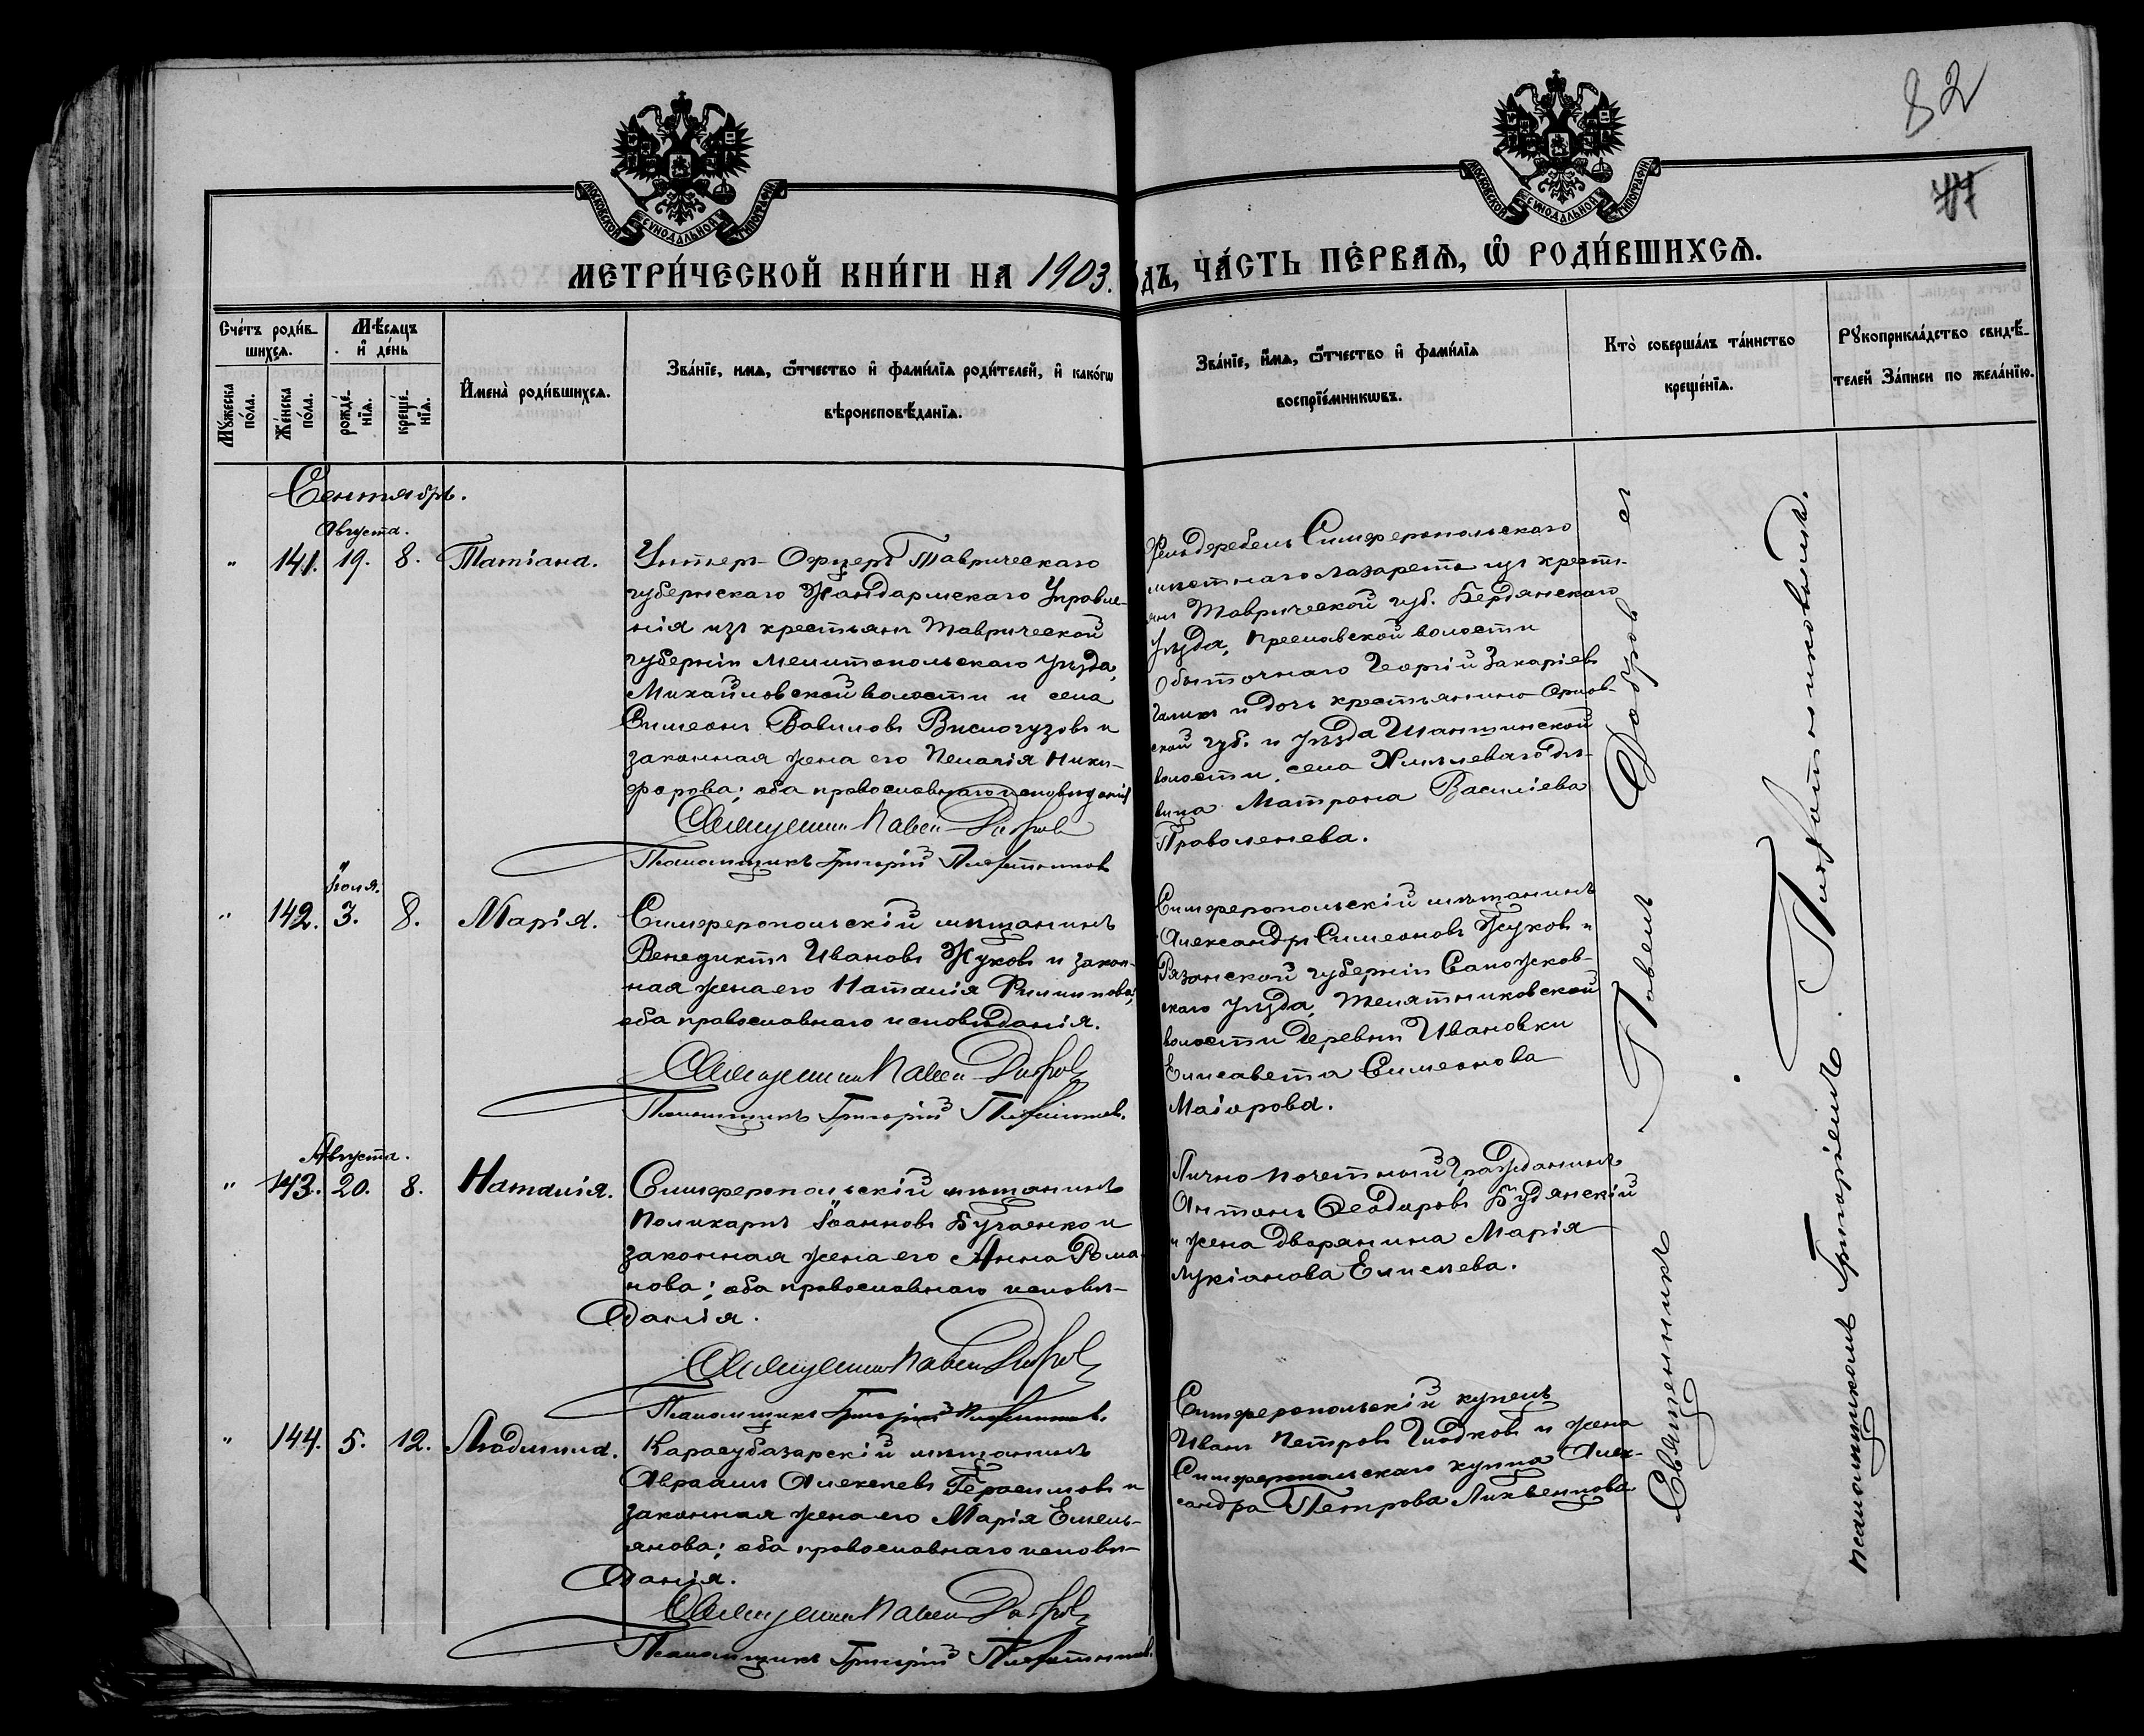 82
МОСКОВСКОЙ СѴНОДАЛЬНОЙ ТИПОГРАФІИ
МОСКОВСКОЙ СѴНОДАЛЬНОЙ ТИПОГРАФІИ
МЕТРИ́ЧЕСКОЙ КНИ́ГИ НА 1903.
дъ, ЧА́СТЬ ПЕ́РВАѦ, Ѡ҆ РОДИ́ВШИХСѦ.
Сче́тъ роди́в-
шихсѧ.
Мѣсяцъ
и҆ де́нь
Мꙋ́жеска
по́ла.
Же́нска
по́ла.
рожде́-
нїѧ.
креще́-
нїѧ.
И҆мена̀ роди́вшихсѧ.
Зва́нїе, имѧ, ѻ҆́тчество и҆ фами́лїѧ роди́телей, и҆ како́гѡ
вѣроисповѣ́данїѧ.
Зва́нїе, и҆́мѧ, ѻ҆́тчество и҆ фами́лїѧ
воспрїе́мникѡвъ.
Кто̀ соверша́лъ та́инство
креще́нїѧ.
Рꙋкоприкла́дство свидѣ́-
телей За́писи по жела́нїю.
Сентябрь.
Августа.
" 141. 19. 8. Татіана.
Унтер-Офицеръ Таврическаго
губернскаго Жандармскаго Управле-
нія изъ крестьянъ Таврической
губерніи Мелитопольскаго уѣзда,
Михайловской волости и села
Симеонъ Вавиловъ Вислогузовъ и
законная жена его Пелагія Ники-
форова; оба православнаго исповѣданія
Священникъ Павелъ Добровъ
Псаломщикъ Григорій Плотниковъ
Фельдшеръ Симферопольскаго
мѣстнаго лазарета изъ кресть-
янъ Таврической губ. Бердянскаго
уѣзда, Преславской волости
Обыточнаго Георгій Захаріевъ
Галикъ и дочь крестьянина Орлов-
ской губ. и уѣзда
волости, села дѣ-
вица Матрона Василіева
Проваленева.
Іюля.
" 142. 3. 8. Марія.
Симферопольскій мѣщанинъ
Венедиктъ Ивановъ Жуковъ и закон-
ная жена его Наталія Филиппова;
оба православнаго исповѣданія.
Священникъ Павелъ Добровъ
Псаломщикъ Григорій Плотниковъ.
Симферопольскій мѣщанинъ
Александръ Симеоновъ Жуковъ и
Рязанской губерніи Сапожков-
скаго уѣзда, Телятниковской
волости деревни Ивановки
Елисавета Симеонова
Маіорова.
Августа.
" 143. 20. 8. Наталія.
Симферопольскій мѣщанинъ
Поликарпъ Іоанновъ Бугаенко и
законная жена его Анна Рома-
нова; оба православнаго исповѣ-
данія.
Священникъ Павелъ Добровъ
Псаломщикъ Григорій Плотниковъ.
Лично почетный гражданинъ
Антонъ Ѳеодоровъ Будянскій
и жена дворянина Марія
Лукіанова Елисѣева.
" 144. 5. 12. Людмила.
Карасубазарскій мѣщанинъ
Авраамъ Алексѣевъ Герасимовъ и
законная жена его Марія Емель-
янова; оба православнаго исповѣ-
данія.
Священникъ Павелъ Добровъ
Псаломщикъ Григорій Плотниковъ.
Симферопольскій купецъ
Иванъ Петровъ Гладковъ и жена
Симферопольскаго купца Алек-
сандра Петрова
Священникъ Павелъ Добровъ съ
псаломщикомъ Григоріемъ Плотниковымъ.